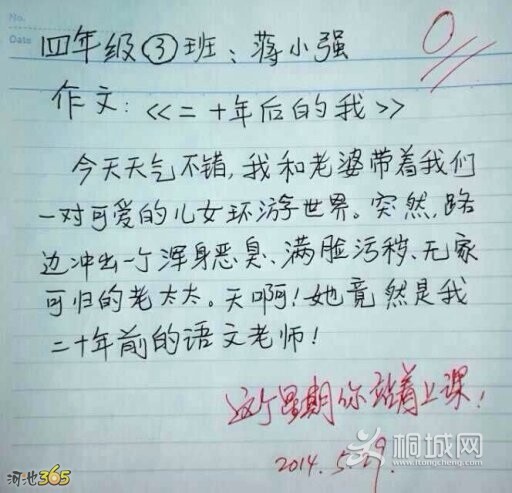 No.
Date
0
四年级③班:蒋小强
作文:<<二十年后的我>>
今天天气不错,我和老婆带着我们
一对可爱的儿女环游世界。突然,路
边冲出一个浑身恶臭、满脸污秽、无家
可归的老太太。天啊!她竟然是我
二十年前的语文老师!
这个星期你站着上课!
2014.5.29.
桐城网
www.itongcheng.com
河池365